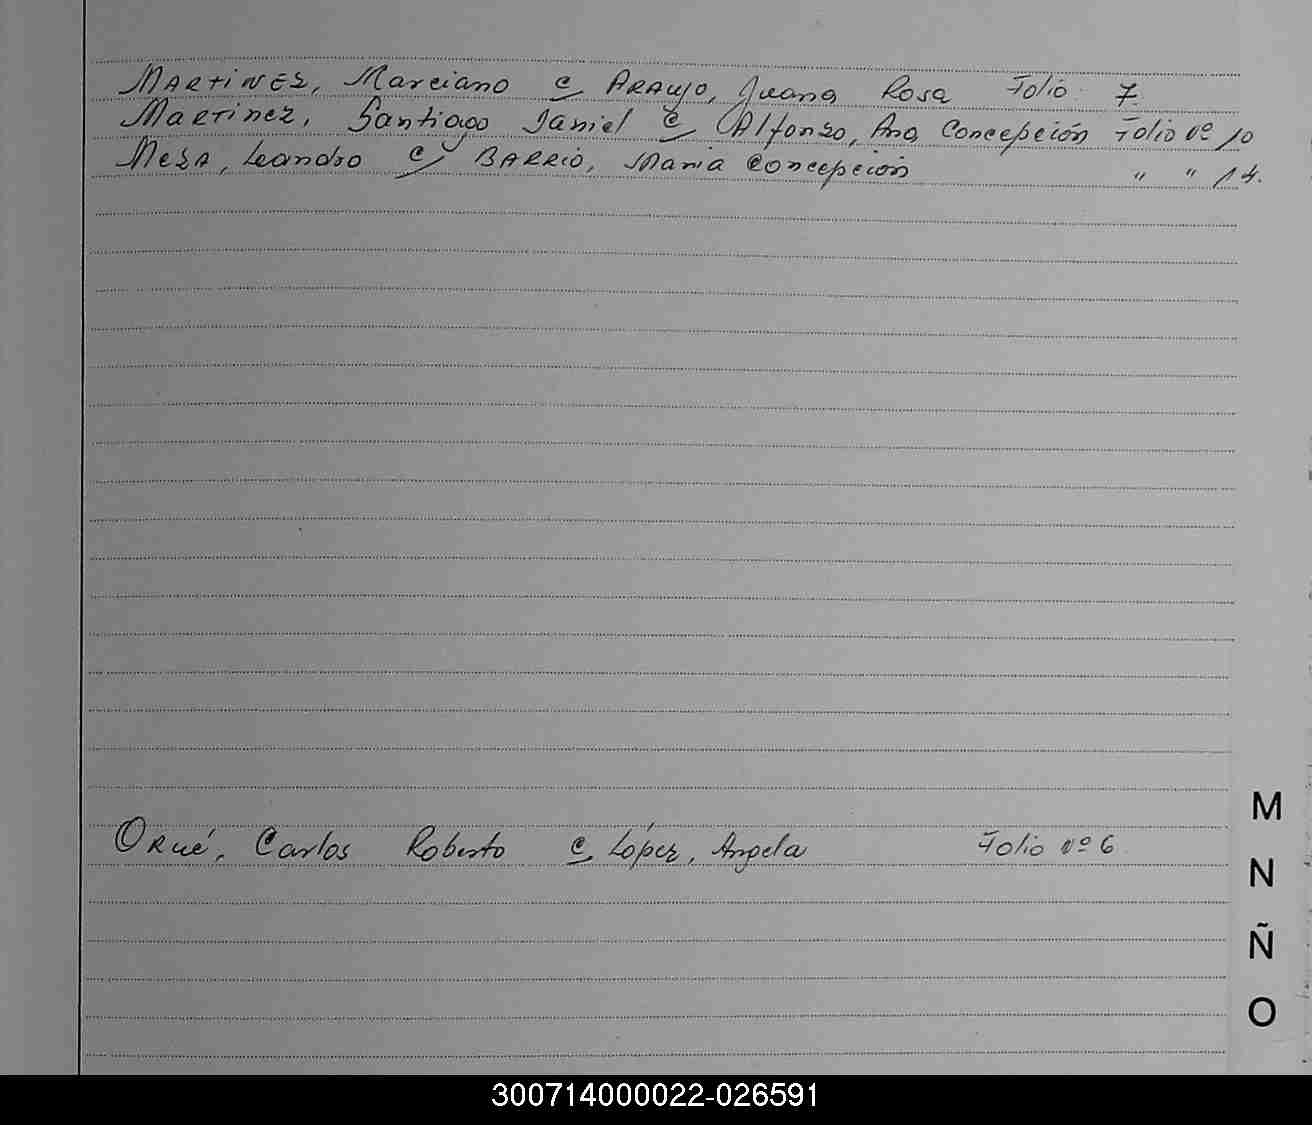 MARTINEZ, Marciano c/ ARAUJO, Juana Rosa Folio 7
Martinez, Santiago Daniel c/ Alfonzo, Ana Concepción Folio Nº 10
Mesa, Leandro c/ BARRIO, Maria Concepción " " 14.
Orué, Carlos Roberto c/ López, Angela Folio Nº 6
M
N
Ñ
O
300714000022-026591